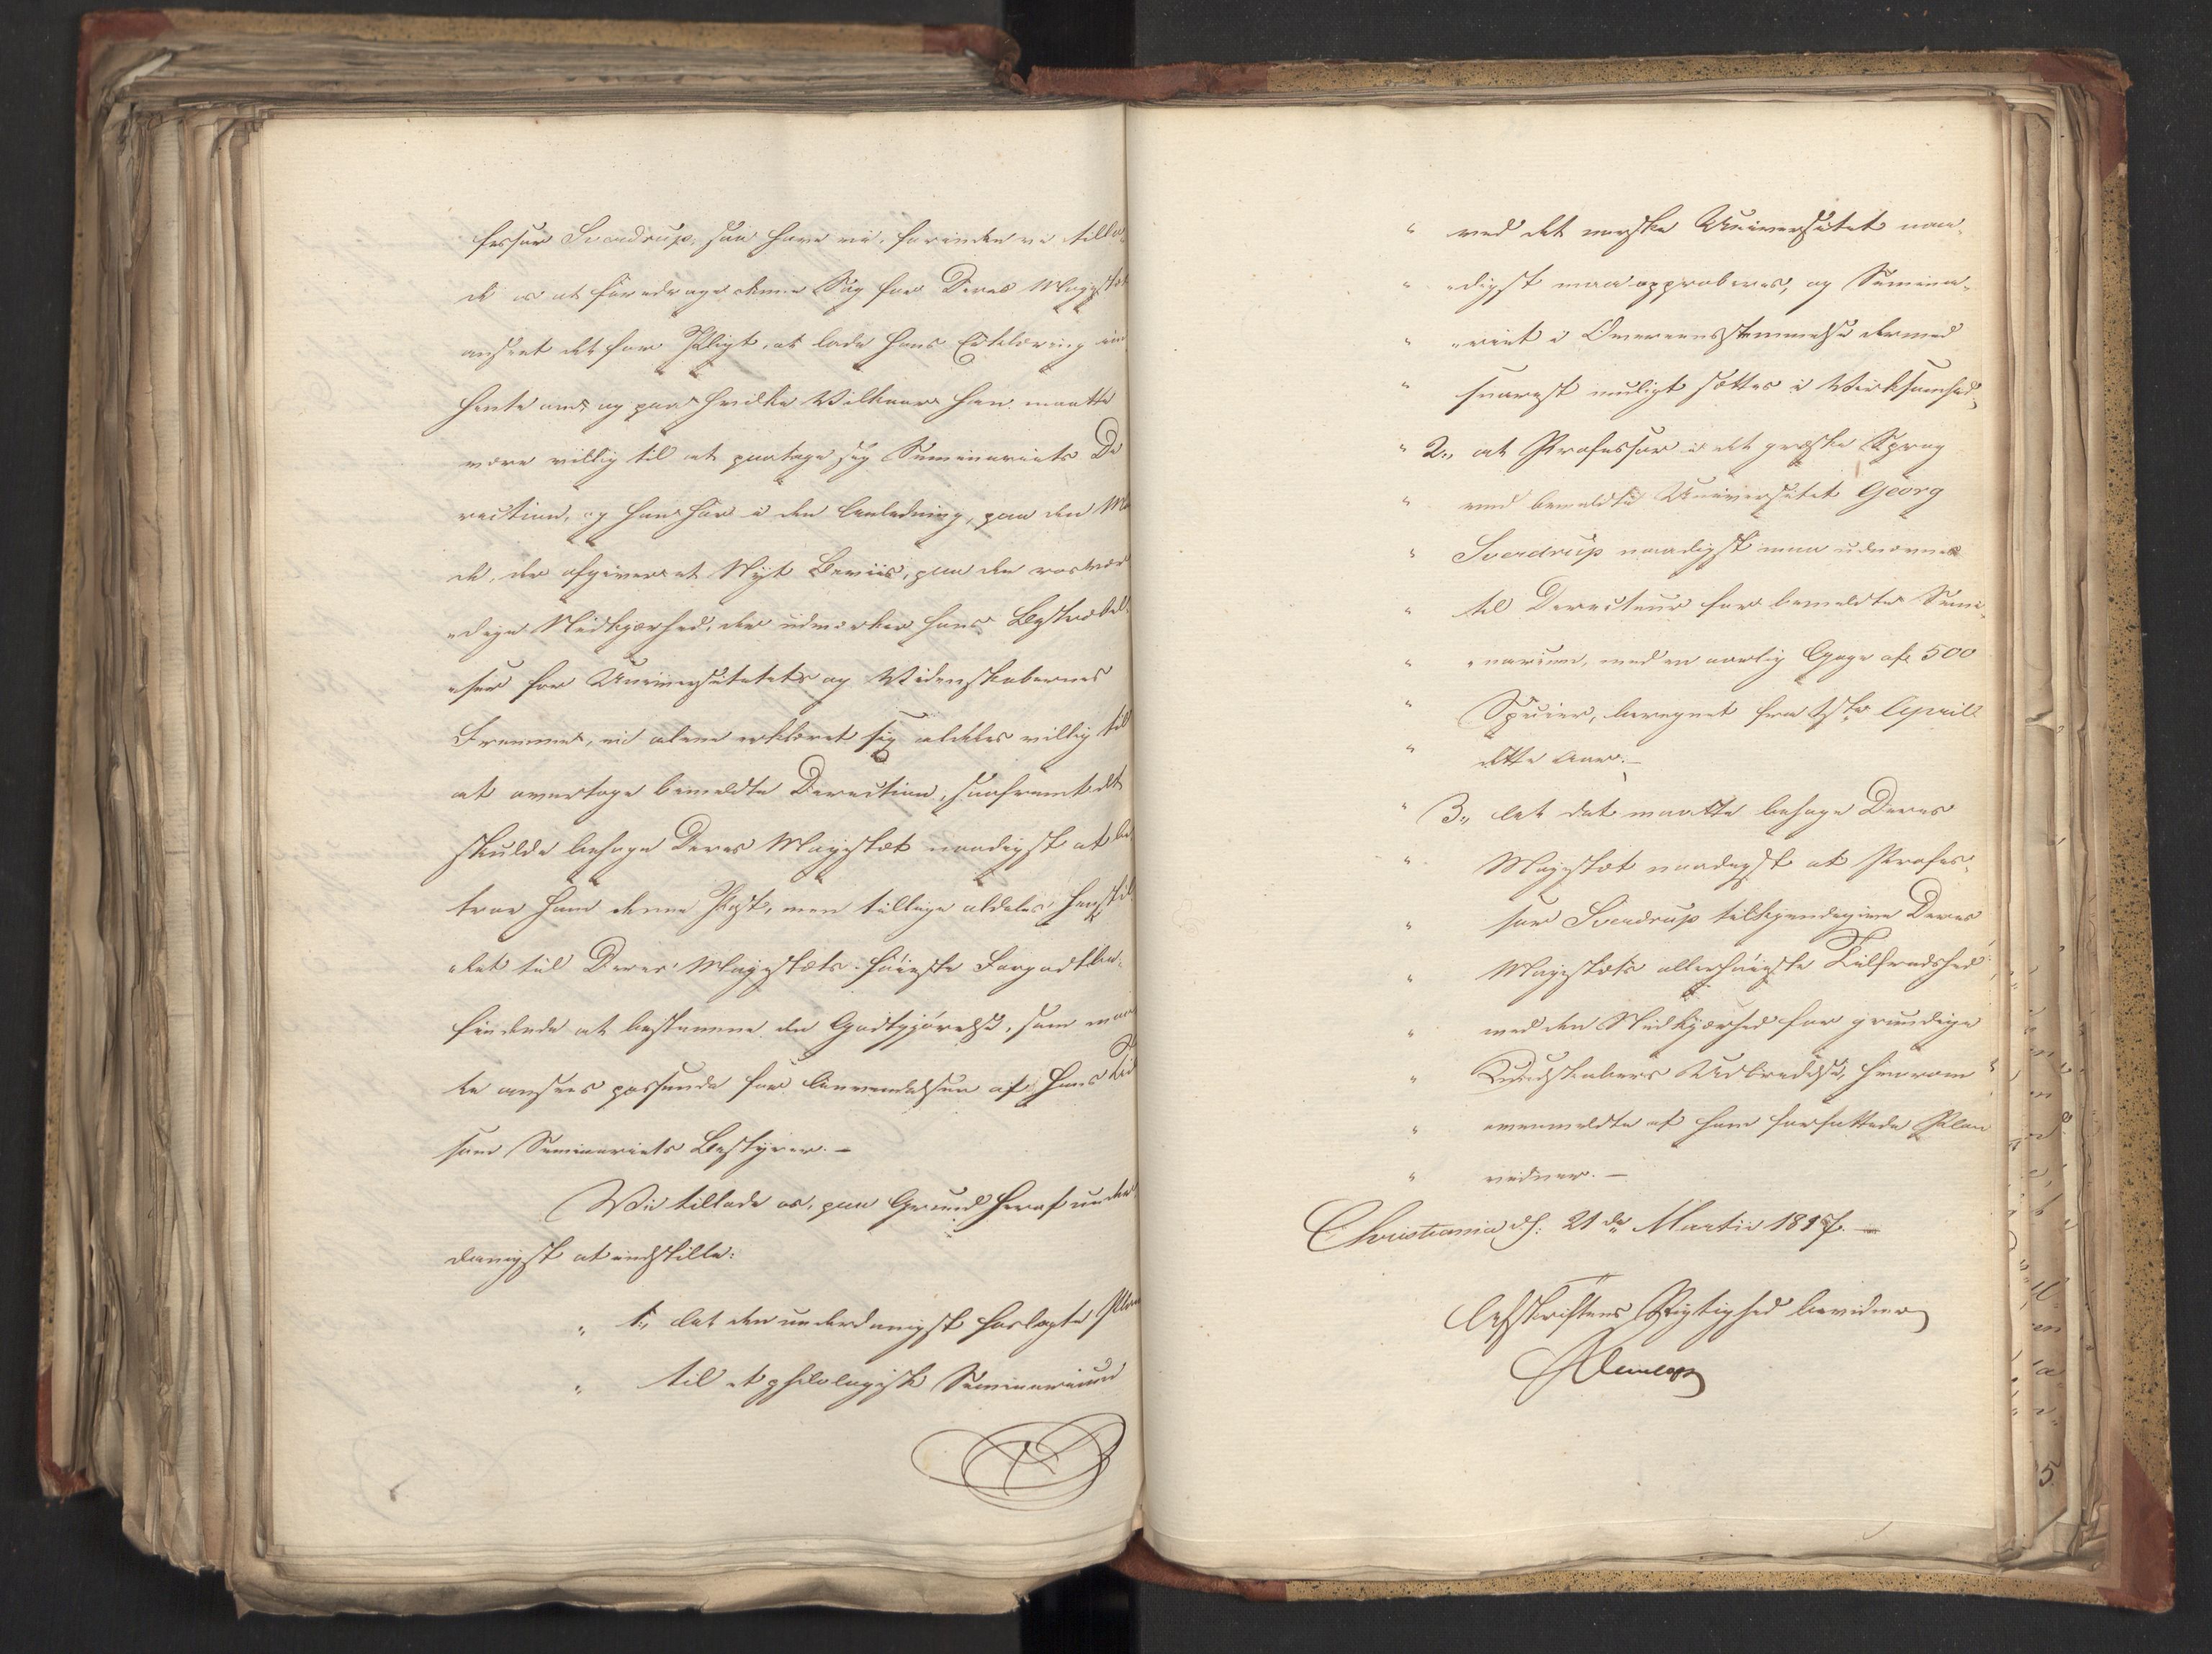 fessor Sverdrup, saa have vi, forinden vi tilla-
de os at foredrage denne Sag for Deres Majestæt
anseet det for Pligt, at lade hans Erklæring ind
hente om og paa hvilke Vilkaar han maatte
være villig til at paatage sig Seminariets Di
rection, og han har i den Anledning, paa den Ma
de, der afgiver et Nyt Beviis paa den rosvær
"dige Nidkjærhed, der udmærker hans Bestræbel
"ser for Universitetets og Videnskabernes
Fremme, ei alene erklæret sig aldeles villig til
at overtage bemeldte Direction, saafremt det
skulde behage Deres Majestæt naadigst at be
troe ham denne Post, men tillige aldeles henstil
"let til Deres Majestæts høieste Forgodtbe-
findende at bestemme den Godtgjørelse, som maat
te ansees passende for Anvendelsen af hans Tid
som Seminariets Bestyrer.—
Vi tillade os, paa Grund heraf under
danigst at indstille:
" 1., At den underdanigst forlagte Plan
" til et philologisk Seminarium
" ved det norske Universitet naa-
" "digst maa approberes, og Semina-
" "riet i Overeensstemmelse dermed
" snarest muligt sættes i Virksomhed,
" 2., at Professor i det græske Sprog
" ved bemeldte Universitet Georg
" Sverdrup naadigst maa udnævnes
" til Directeur for bemeldte Semi-
" "narium, med en aarlig Gage af 500
" Specier, beregnet fra 1ste April
" dette Aar.—
" 3., At det maatte behage Deres
" Majestæt naadigst at Profes-
" sor Sverdrup tilkjendegive Deres
" Majestæts allerhøieste Tilfredshed
" med den Nidkjærhed for grundige
" Kundskabers Udbredelse, hvorom
" ovenmeldte af ham forfattede Plan
" vidner.—
Christiania d. 21de Martii 1817.—
Afskriftens Rigtighed bevidner